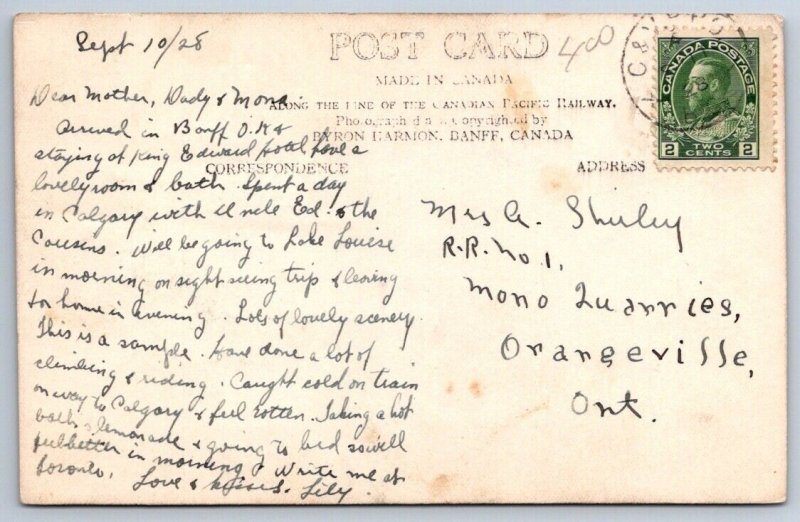 Sept 10/28
400
POST CARD
MADE IN CANADA
ALONG THE LINE OF THE CANADIAN PACIFIC RAILWAY.
Photographed and Copyrighted by
BYRON HARMON, BANFF, CANADA
CORRESPONDENCE
ADDRESS
CANADA POSTAGE
2 TWO CENTS 2
Dear Mother, Dady &
Arrived in Banff O.K. &
staying at King Edward Hotel have a
lovely room & bath. Spent a day
in Calgary with Uncle Ed. & the
Cousins. Will be going to Lake Louise
in morning on sight seeing trip & leaving
for home in evening. Lots of lovely scenery.
This is a sample. Have done a lot of
climbing & riding. Caught cold on train
on way to Calgary & feel rotten. Taking a hot
bath & lemonade & going to bed so will
feel better in morning. Write me at
Toronto. Love & kisses. Lily.
Mrs A. Shirley
R.R. No 1,
Mono Quarries,
Orangeville,
Ont.